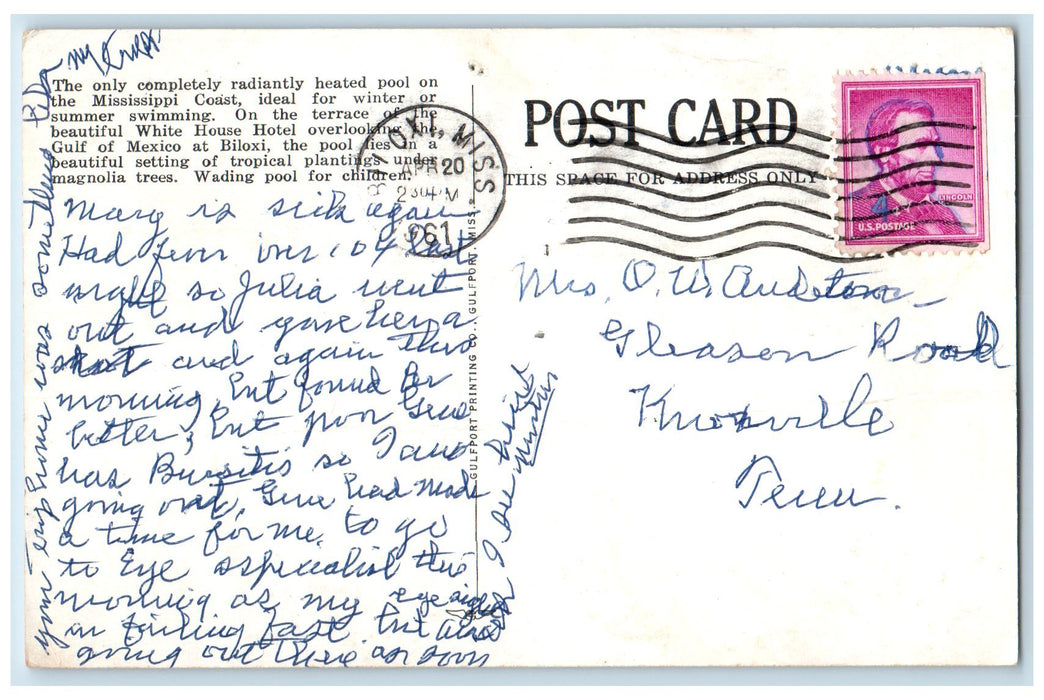 The only completely radiantly heated pool on
the Mississippi Coast, ideal for winter or
summer swimming. On the terrace of the
beautiful White House Hotel overlooking the
Gulf of Mexico at Biloxi, the pool lies in a
beautiful setting of tropical plantings under
magnolia trees. Wading pool for children.
Mary is sick again
Had fever over 104 last
night so Julia went
out and gave her a
shot and again this
morning, but found her
better, but poor Gene
has Bursitis so I am
going out, Gene had made
a time for me, to go
to Eye sspecialist this
morning as my eye sight
in failing fast. but am
going out there as soon
as I see
your was something
my
GULFPORT PRINTING CO., GULFPORT, MISS.
POST CARD
THIS SPACE FOR ADDRESS ONLY
BILOXI, MISS
APR 20
230 PM
1961
LINCOLN
U.S. POSTAGE
Mrs. O. W.
Gleason Road
Knoxville
Tenn.